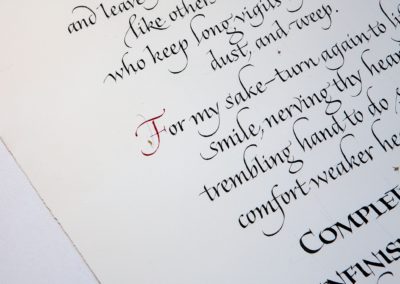 and leave
like others
who keep long vigils
dust, and weep.
For my sake - turn again to li
smile, nerving thy hear
trembling hand to do
comfort weaker he
COMPLE
NFINIS